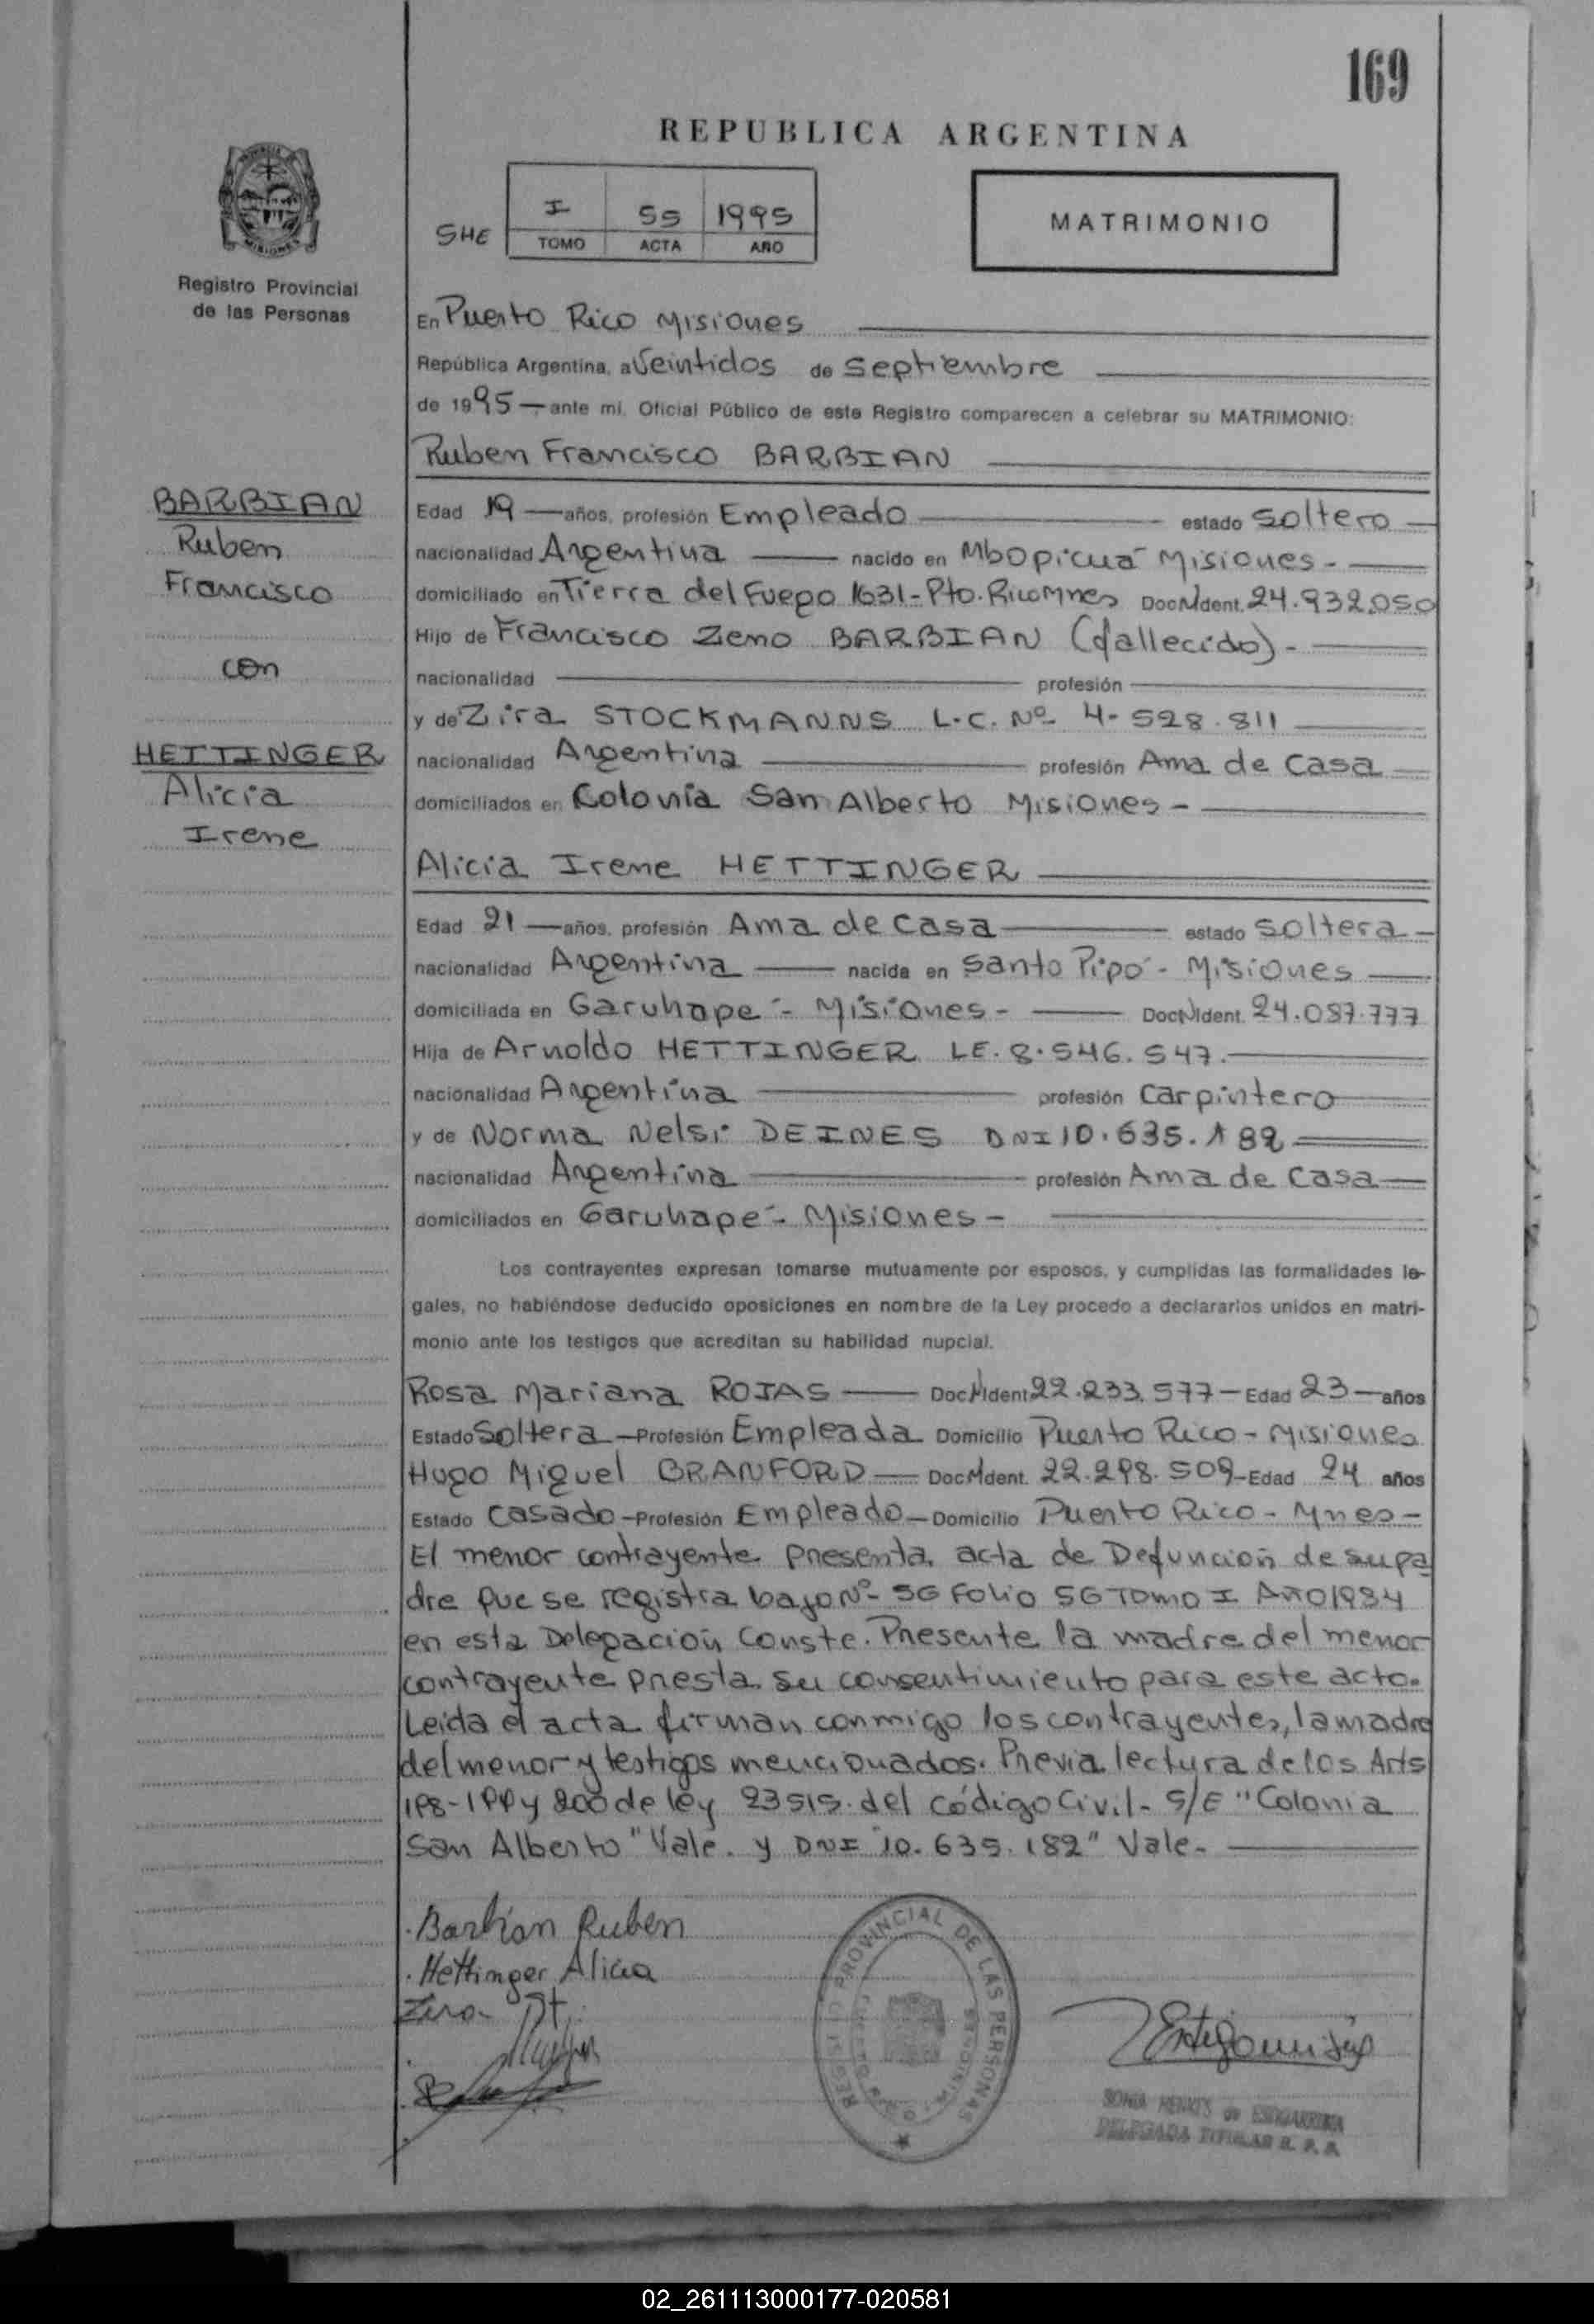 169
REPUBLICA ARGENTINA
SHE
I 55 1995
TOMO ACTA AÑO
MATRIMONIO
Registro Provincial
de las Personas
BARBIAN
Ruben
Francisco
con
HETTINGER
Alicia
Irene
En Puerto Rico Misiones
República Argentina, a Veintidos de Septiembre
de 1995 — ante mí, Oficial Público de este Registro comparecen a celebrar su MATRIMONIO:
Ruben Francisco BARBIAN
Edad 19 — años, profesión Empleado estado Soltero
nacionalidad Argentina nacido en Mbopicuá Misiones -
domiciliado en Tierra del Fuego 1631 - Pto. Rico Mnes Doc N Ident. 24.932.050
Hijo de Francisco Zeno BARBIAN (fallecido) -
nacionalidad profesión
y de Zira STOCKMANNS L.C. Nº 4-528.811
nacionalidad Argentina profesión Ama de Casa
domiciliados en Colonia San Alberto Misiones -
Alicia Irene HETTINGER
Edad 21 — años, profesión Ama de Casa estado Soltera
nacionalidad Argentina nacida en Santo Pipó - Misiones
domiciliada en Garuhape - Misiones - Doc N Ident. 24.087.777
Hija de Arnoldo HETTINGER LE. 8.546.547.
nacionalidad Argentina profesión Carpintero
y de Norma Nelsi DEINES DNI 10.635.182
nacionalidad Argentina profesión Ama de Casa
domiciliados en Garuhape - Misiones -
Los contrayentes expresan tomarse mutuamente por esposos, y cumplidas las formalidades le-
gales, no habiéndose deducido oposiciones en nombre de la Ley procedo a declararlos unidos en matri-
monio ante los testigos que acreditan su habilidad nupcial.
Rosa Mariana ROJAS — Doc N Ident 22.233.577 — Edad 23 — años
Estado Soltera — Profesión Empleada Domicilio Puerto Rico - Misiones
Hugo Miguel BRANFORD — Doc N Ident. 22.298.509 - Edad 24 años
Estado Casado — Profesión Empleado — Domicilio Puerto Rico - Mnes -
El menor contrayente presenta acta de Defunción de su pa
dre que se registra bajo Nº 56 Folio 56 Tomo I Año 1984
en esta Delegación Conste. Presente la madre del menor
contrayente presta su consentimiento para este acto.
Leida el acta firman conmigo los contrayentes, la madre
del menor y testigos mencionados. Previa lectura de los Arts
198-199 y 200 de ley 23515. del código Civil - S/E "Colonia
San Alberto" Vale. y DNI "10.635.182" Vale.
Barbian Ruben
Hettinger Alicia
REGISTRO PROVINCIAL DE LAS PERSONAS
PUERTO RICO MISIONES
DELEGADA TITULAR R. P. P.
02_261113000177-020581